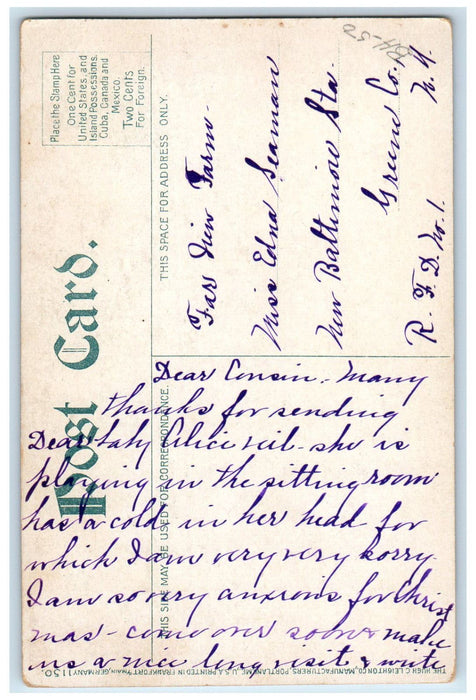 BH-52
Place the Stamp Here
One Cent for
United States, and
Island Possessions.
Cuba, Canada and
Mexico.
Two Cents
For Foreign.
Post Card.
THIS SPACE FOR ADDRESS ONLY.
Far View Farm-
Miss Edna Seaman
New Baltimore Sta.
Greene Co.
N.Y.
R.F.D. No. 1.
THIS SIDE MAY BE USED FOR CORRESPONDENCE.
Dear Cousin. Many
thanks for sending
Dear baby Alice veil - she is
playing in the sitting room
has a cold, in her head for
which I am very very sorry.
I am so very anxious for Christ
mas - come over soon & make
us a nice long visit & write
THE HUGH C. LEIGHTON CO., MANUFACTURERS, PORTLAND, ME., U.S.A. PRINTED IN FRANKFORT o/MAIN, GERMANY
1150